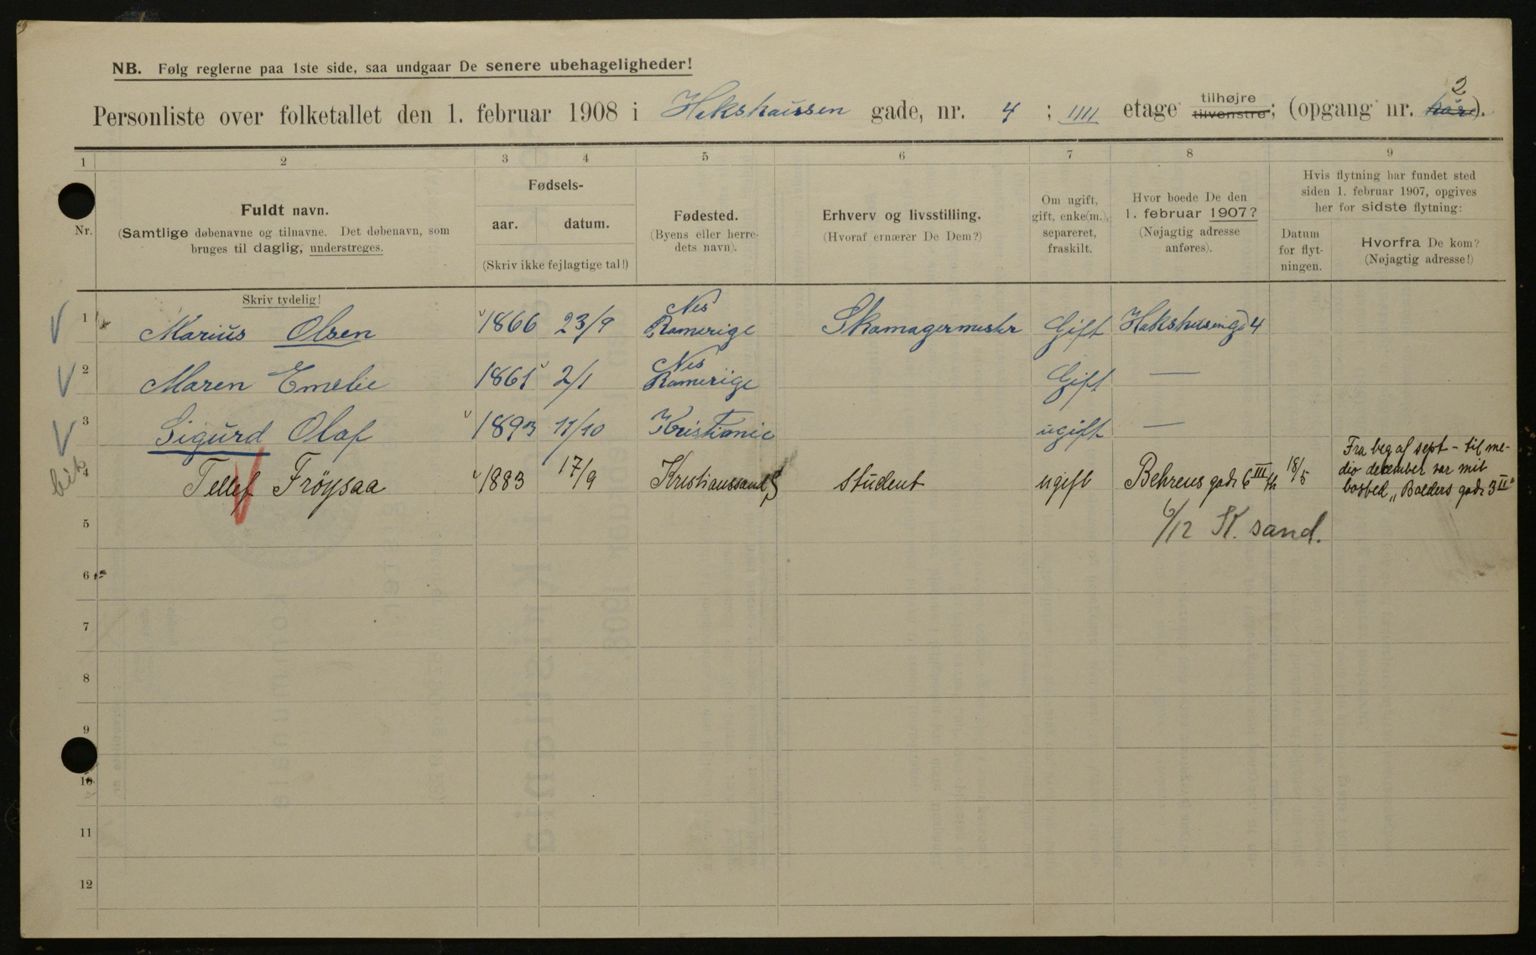 NB. Følg reglerne paa 1ste side, saa undgaar De senere ubehageligheder!
Personliste over folketallet den 1. februar 1908 i Hekshaussen gade, nr. 4 ; IIII etage tilhøjre tilvenstre; (opgang nr. 2).
1 2 3 4 5 6 7 8 9
Nr.
Fuldt navn.
(Samtlige døbenavne og tilnavne. Det døbenavn, som
bruges til daglig, understreges.
Skriv tydelig!
Fødsels-
aar. datum.
(Skriv ikke fejlagtige tal!)
Fødested.
(Byens eller herre-
dets navn).
Erhverv og livsstilling.
(Hvoraf ernærer De Dem?)
Om ugift,
gift, enke(m.),
separeret,
fraskilt.
Hvor boede De den
1. februar 1907?
(Nøjagtig adresse
anføres).
Hvis flytning har fundet sted
siden 1. februar 1907, opgives
her for sidste flytning:
Datum
for flyt-
ningen.
Hvorfra De kom?
(Nøjagtig adresse!)
1 Marius Olsen 1866 23/9 Nes Romerige Skomagermester Gift Hekshusengd 4
2 Maren Emelie 1861 2/1 Nes Romerige Gift —
3 Sigurd Olaf 1893 11/10 Kristiania ugift —
4 Tellef Frøysaa 1883 17/9 Kristianssand S student ugift Behrens gade 6 III 18/5
Fra beg af sept - til me-
dio december var mit
bosted „Balders gade 3 II"
6/12 K. sand.
5
6
7
8
9
10
11
12